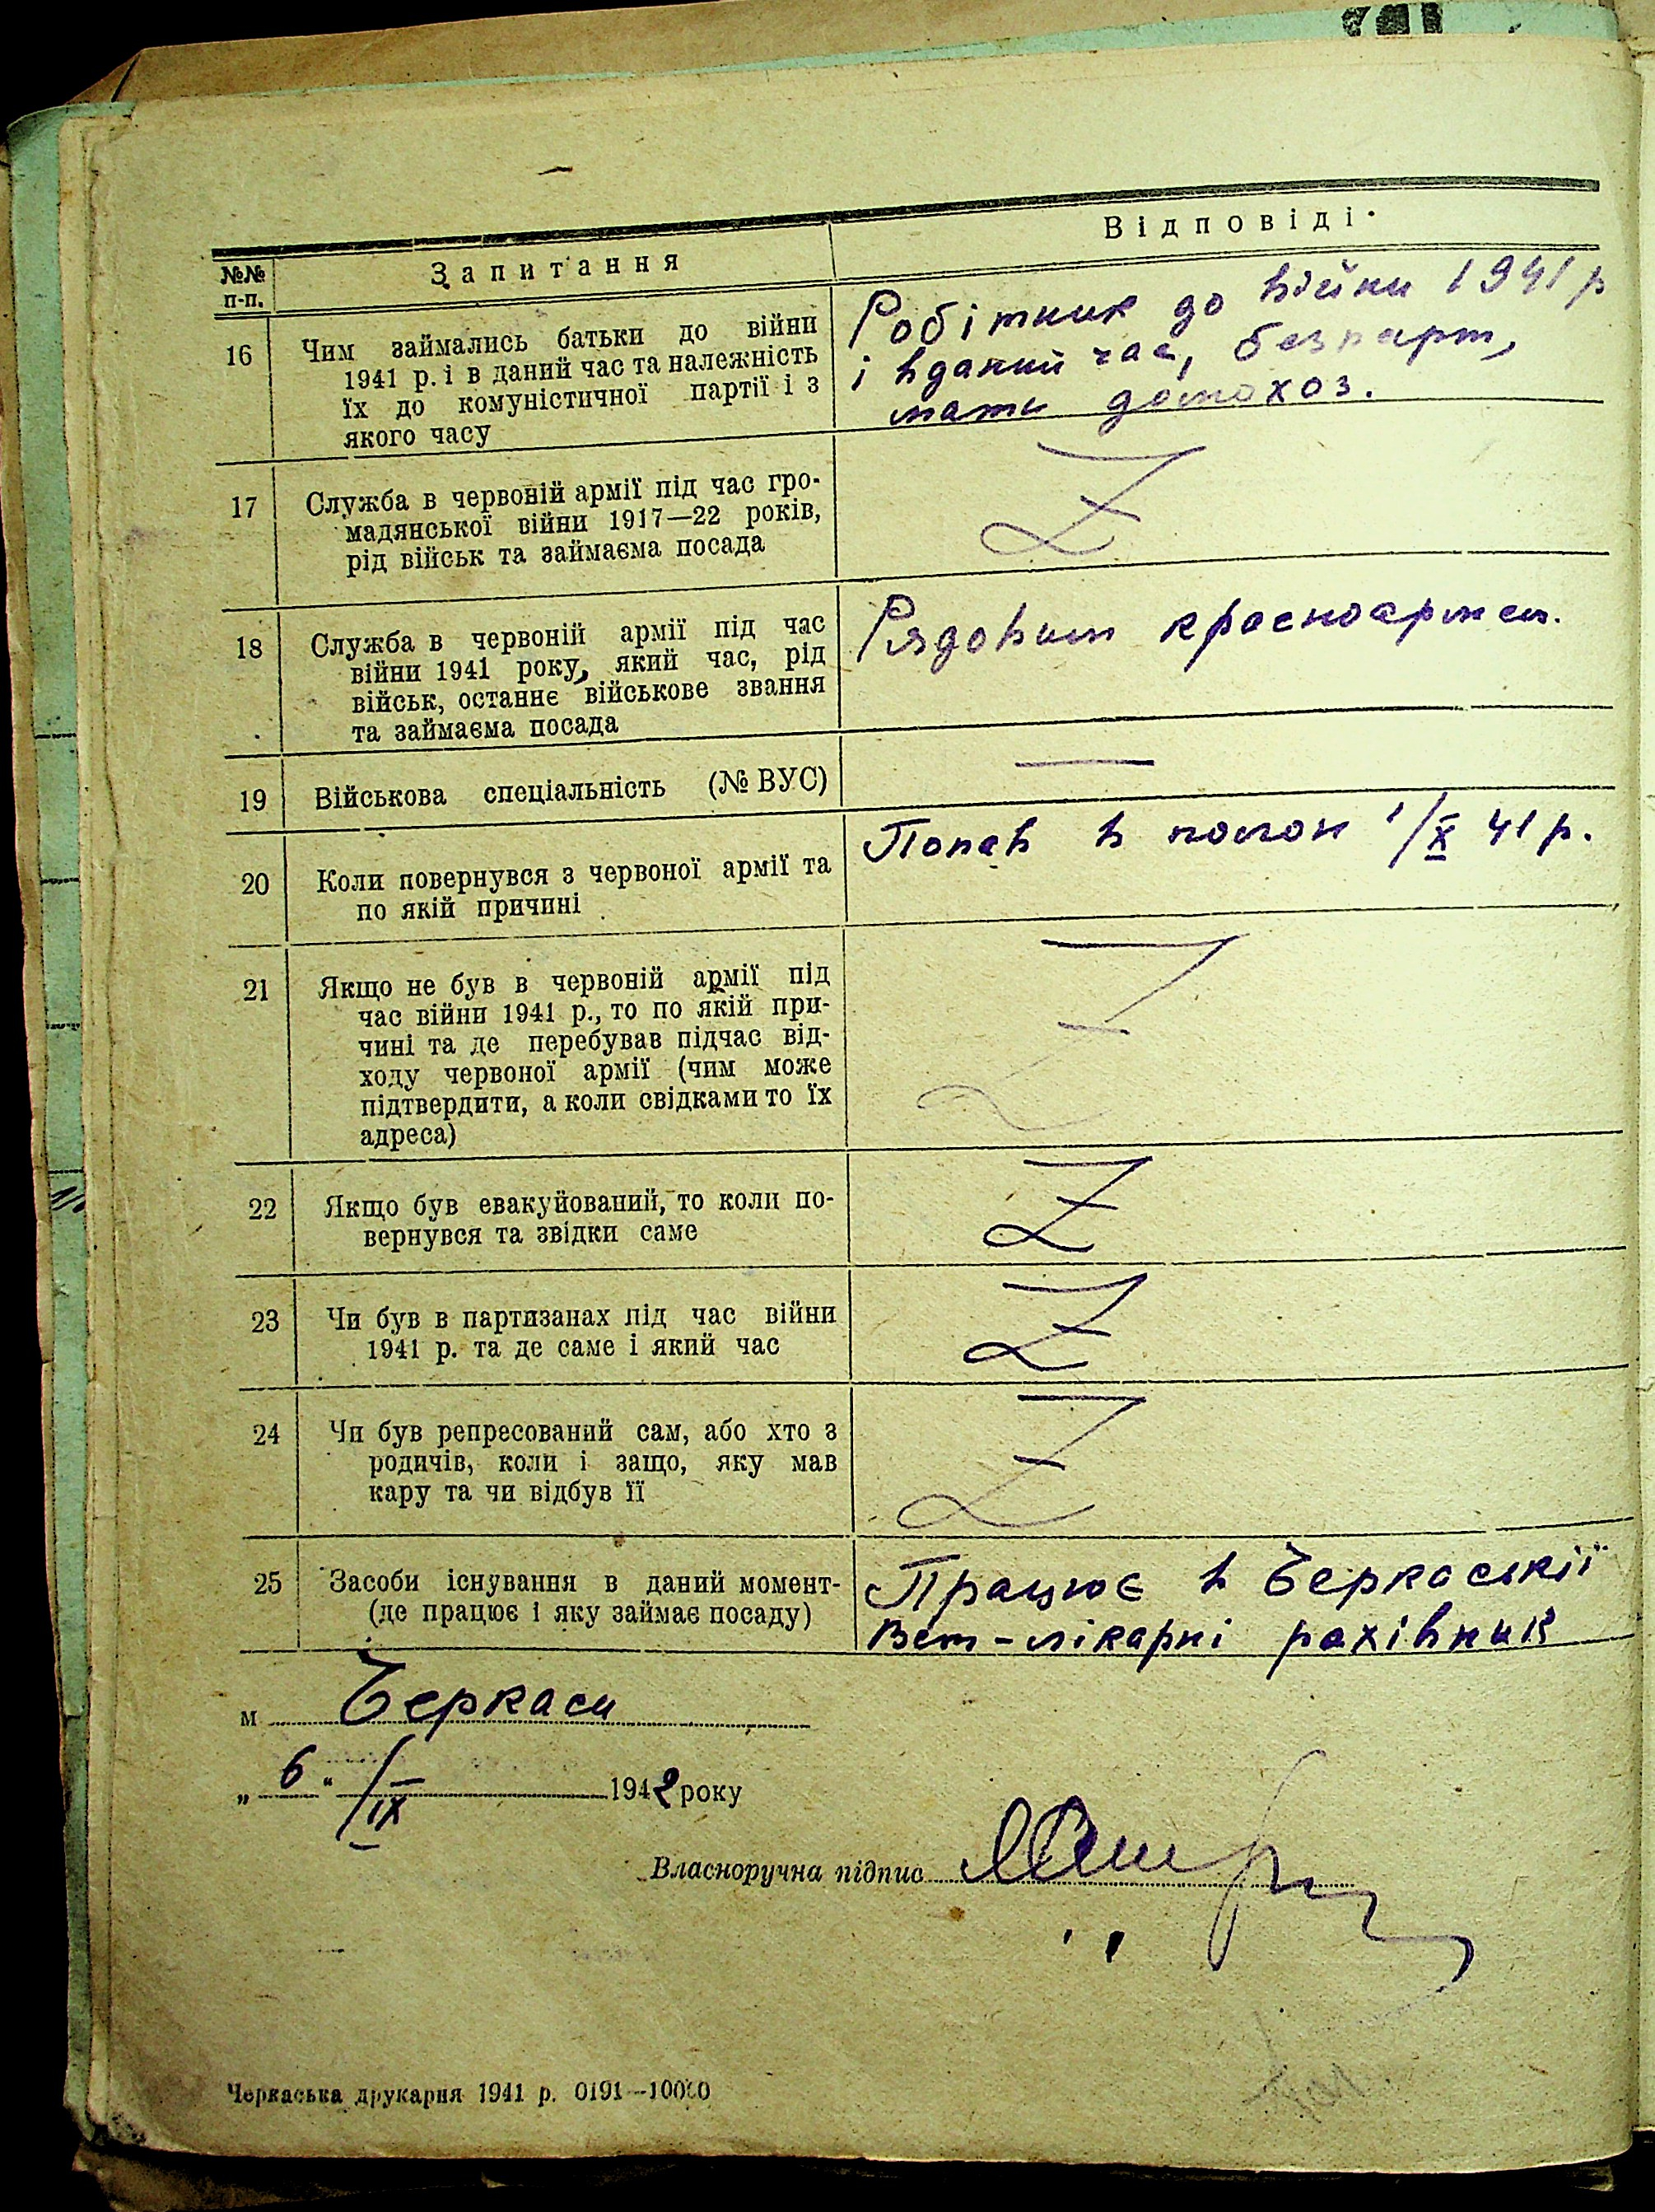 №№ п-п. Запитання Відповіді.
16 Чим займались батьки до війни
1941 р. і в даний час та належність
їх до комуністичної партії і з
якого часу
Робітник до війни 1941 р
і вданий час, безпарт,
мати домохоз.
17 Служба в червоній армії під час гро-
мадянської війни 1917—22 років,
рід військ та займаєма посада
Z
18 Служба в червоній армії під час
війни 1941 року, який час, рід
військ, останнє військове звання
та займаєма посада
Рядовим красноармєм.
19 Військова спеціальність (№ ВУС)
—
20 Коли повернувся з червоної армії та
по якій причині
Попав в полон 1/X 41 р.
21 Якщо не був в червоній армії під
час війни 1941 р., то по якій при-
чині та де перебував підчас від-
ходу червоної армії (чим може
підтвердити, а коли свідками то їх
адреса)
Z
22 Якщо був евакуйований, то коли по-
вернувся та звідки саме
Z
23 Чи був в партизанах під час війни
1941 р. та де саме і який час
Z
24 Чи був репресований сам, або хто з
родичів, коли і защо, яку мав
кару та чи відбув її
Z
25 Засоби існування в даний момент-
(де працює і яку займає посаду)
Працює в Черкаській
Вет-лікарні рахівник
м Черкаси
„ 6 “ /IX 1942 року
Власноручна підпис
Черкаська друкарня 1941 р. 0191—10000